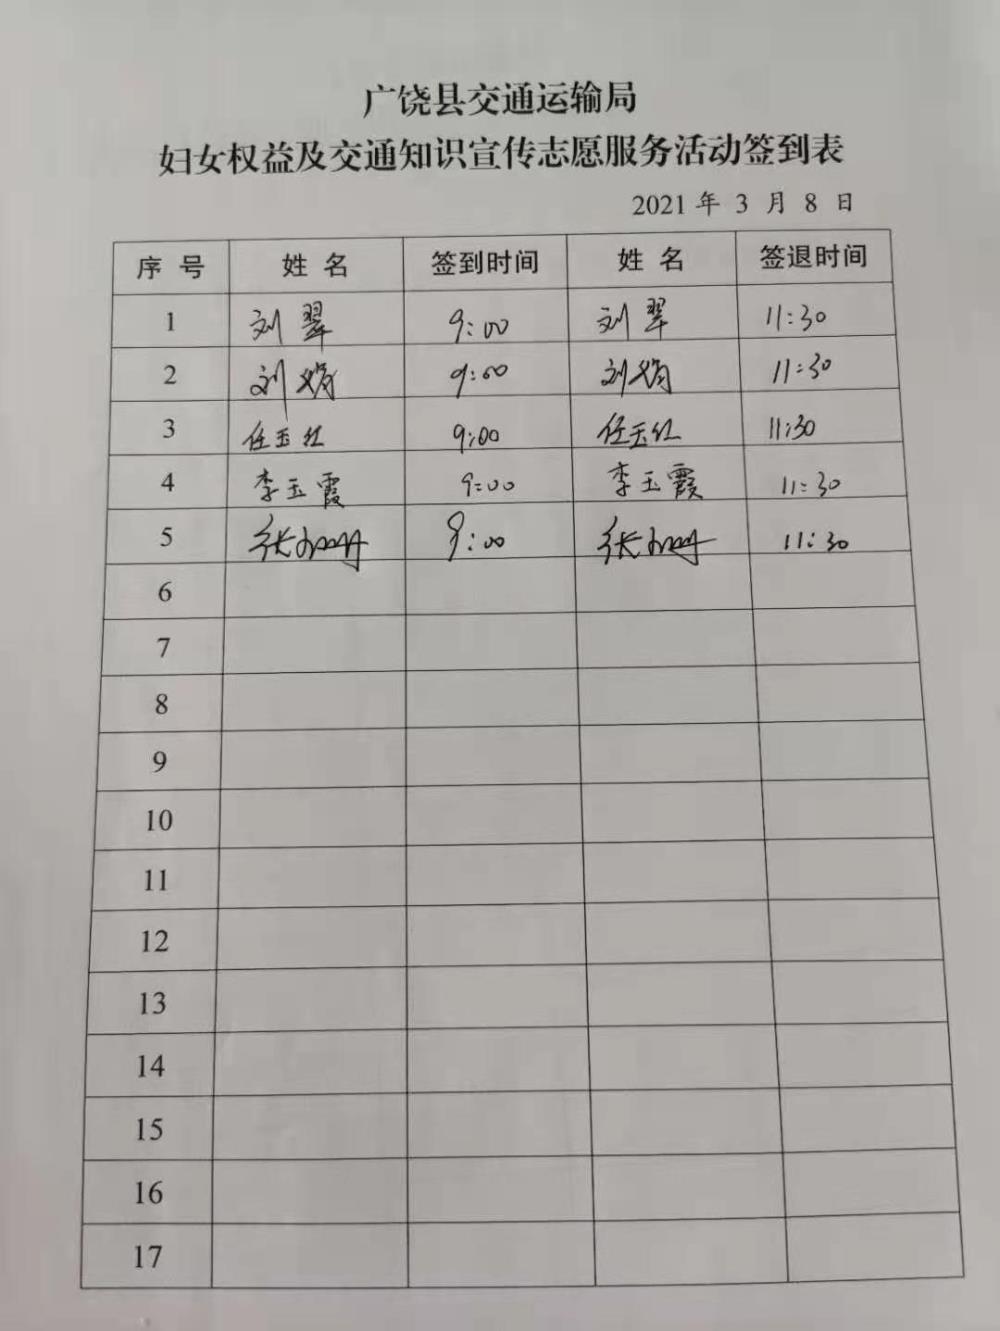 广饶县交通运输局
妇女权益及交通知识宣传志愿服务活动签到表
2021 年 3 月 8 日
序 号 姓 名 签到时间 姓 名 签退时间
1 刘翠 9:00 刘翠 11:30
2 刘娟 9:00 刘娟 11:30
3 任玉红 9:00 任玉红 11:30
4 李玉霞 9:00 李玉霞 11:30
5 张 9:00 张 11:30
6
7
8
9
10
11
12
13
14
15
16
17